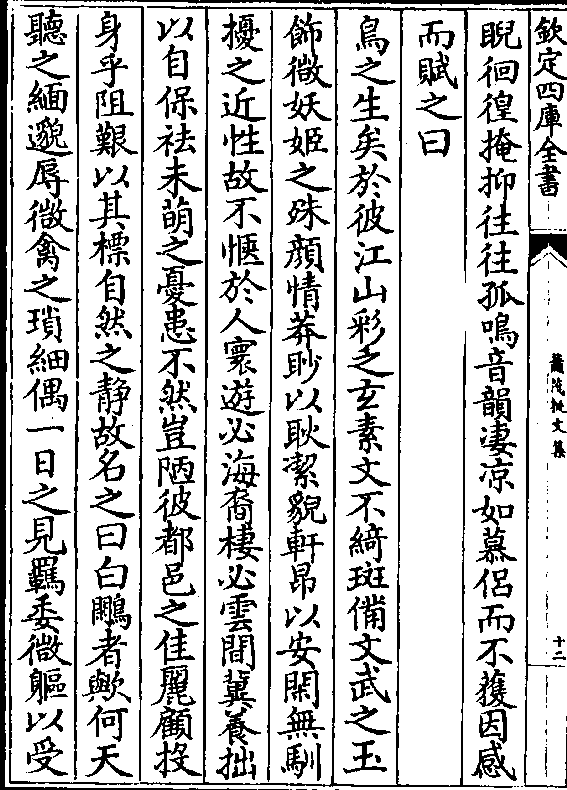 欽定四庫全書
蕭茂挺文集
十二
睨徊徨掩抑往往孤鳴音韻淒凉如慕侣而不獲因感
而賦之曰
鳥之生矣於彼江山彩之玄素文不綺斑備文武之玉
飾㣲妖姬之殊顔情莽眇以耿潔貌軒昂以安閑無馴
擾之近性故不愜於人寰遊必海裔棲必雲間冀養拙
以自保祛未萌之憂患不然豈陋彼都邑之佳麗顧投
身乎阻艱以其標自然之静故名之曰白鷴者歟何天
聽之緬邈辱㣲禽之瑣細偶一日之見羈委㣲軀以受